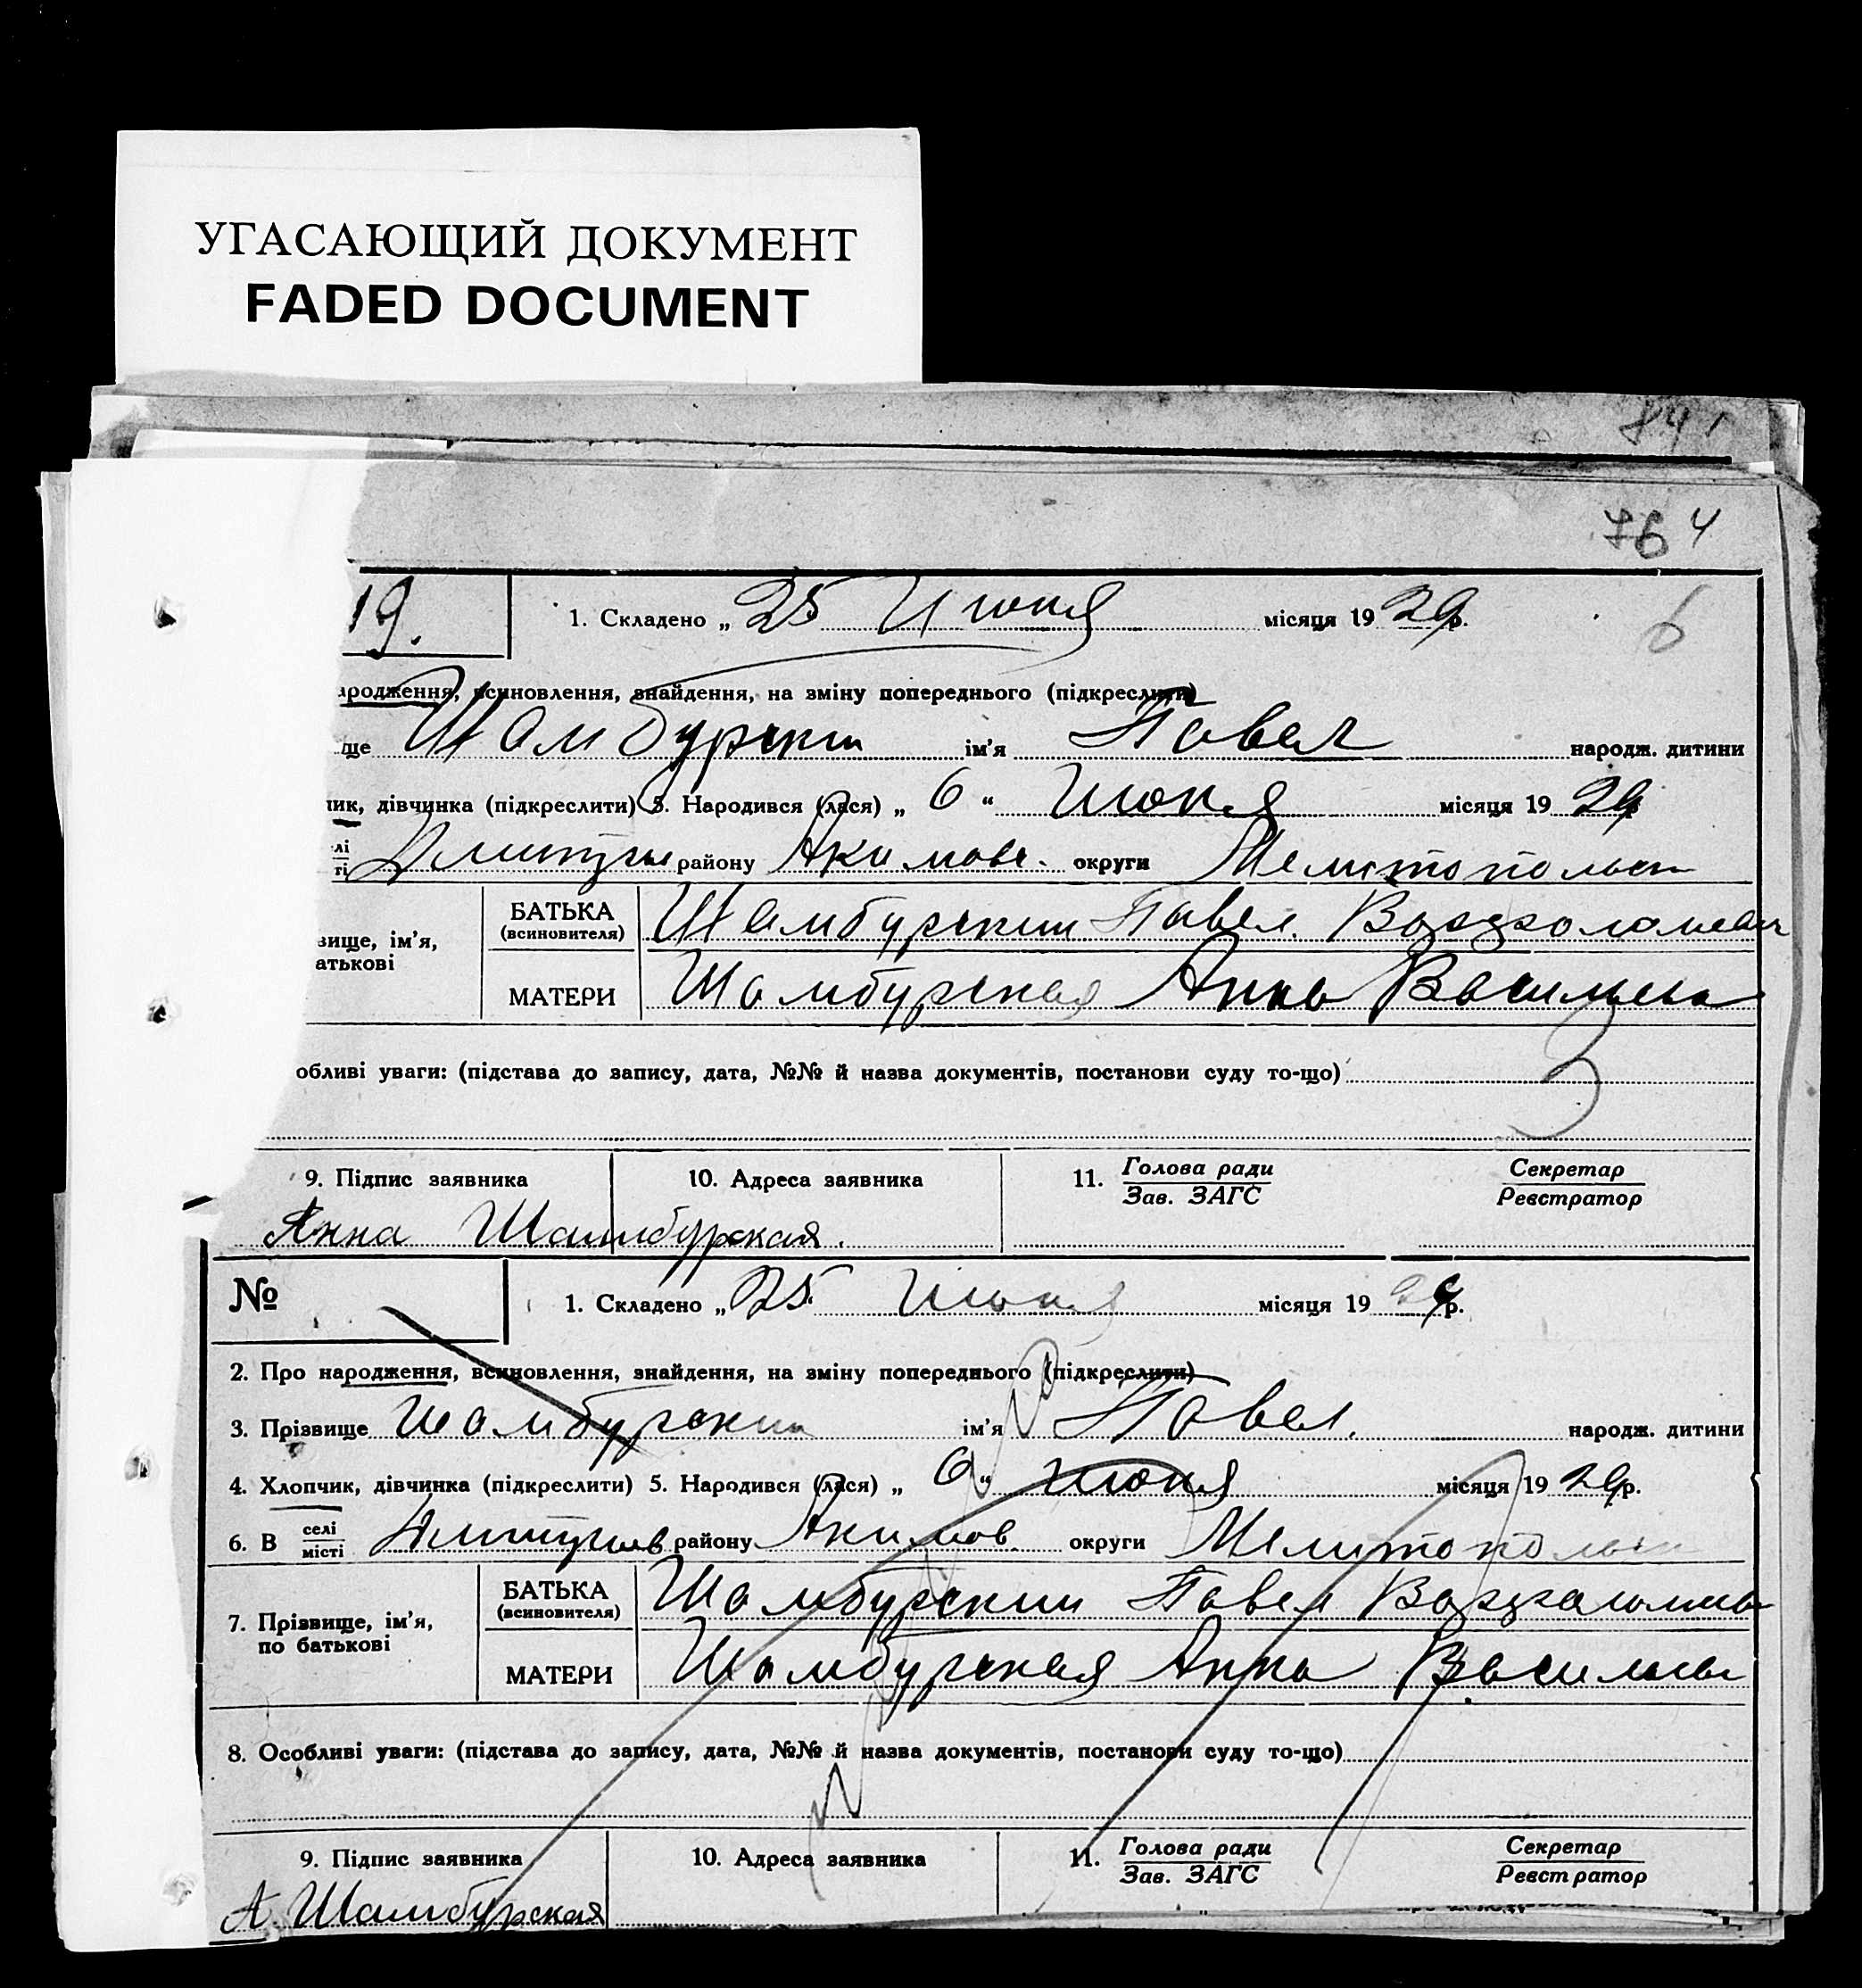 УГАСАЮЩИЙ ДОКУМЕНТ
FADED DOCUMENT
841
764
6
19. 1. Складено „ 25 Июня місяця 19 29 р.
ародження, всиновлення, знайдення, на зміну попереднього (підкреслити)
ще Шамбурский ім'я Павел народж. дитини
ик, дівчинка (підкреслити) 5. Народився (лася) „ 6 “ Июня місяця 19 29
лі
ті району Акимовс. округи Мелитопольск
вище, ім'я,
атькові
БАТЬКА
(всиновителя) Шамбурский Павел
МАТЕРИ Шамбурская Анна Васильевна
обливі уваги: (підстава до запису, дата, №№ й назва документів, постанови суду то-що)
9. Підпис заявника 10. Адреса заявника 11. Голова ради Секретар
Зав. ЗАГС Реєстратор
Анна Шамбурская.
№ 1. Складено „ 25 “ Июня місяця 19 29 р.
2. Про народження, всиновлення, знайдення, на зміну попереднього (підкреслити)
3. Прізвище Шамбурский ім'я Павел. народж. дитини
4. Хлопчик, дівчинка (підкреслити) 5. Народився (лася) „ 6 “ июня місяця 19 29 р.
6. В селі
місті району Акимов. округи Мелитопольск
7. Прізвище, ім'я,
по батькові
БАТЬКА
(всиновителя) Шамбурский Павел
МАТЕРИ Шамбурская Анна
8. Особливі уваги: (підстава до запису, дата, №№ й назва документів, постанови суду то-що)
9. Підпис заявника 10. Адреса заявника 11. Голова ради Секретар
Зав. ЗАГС Реєстратор
А. Шамбурская